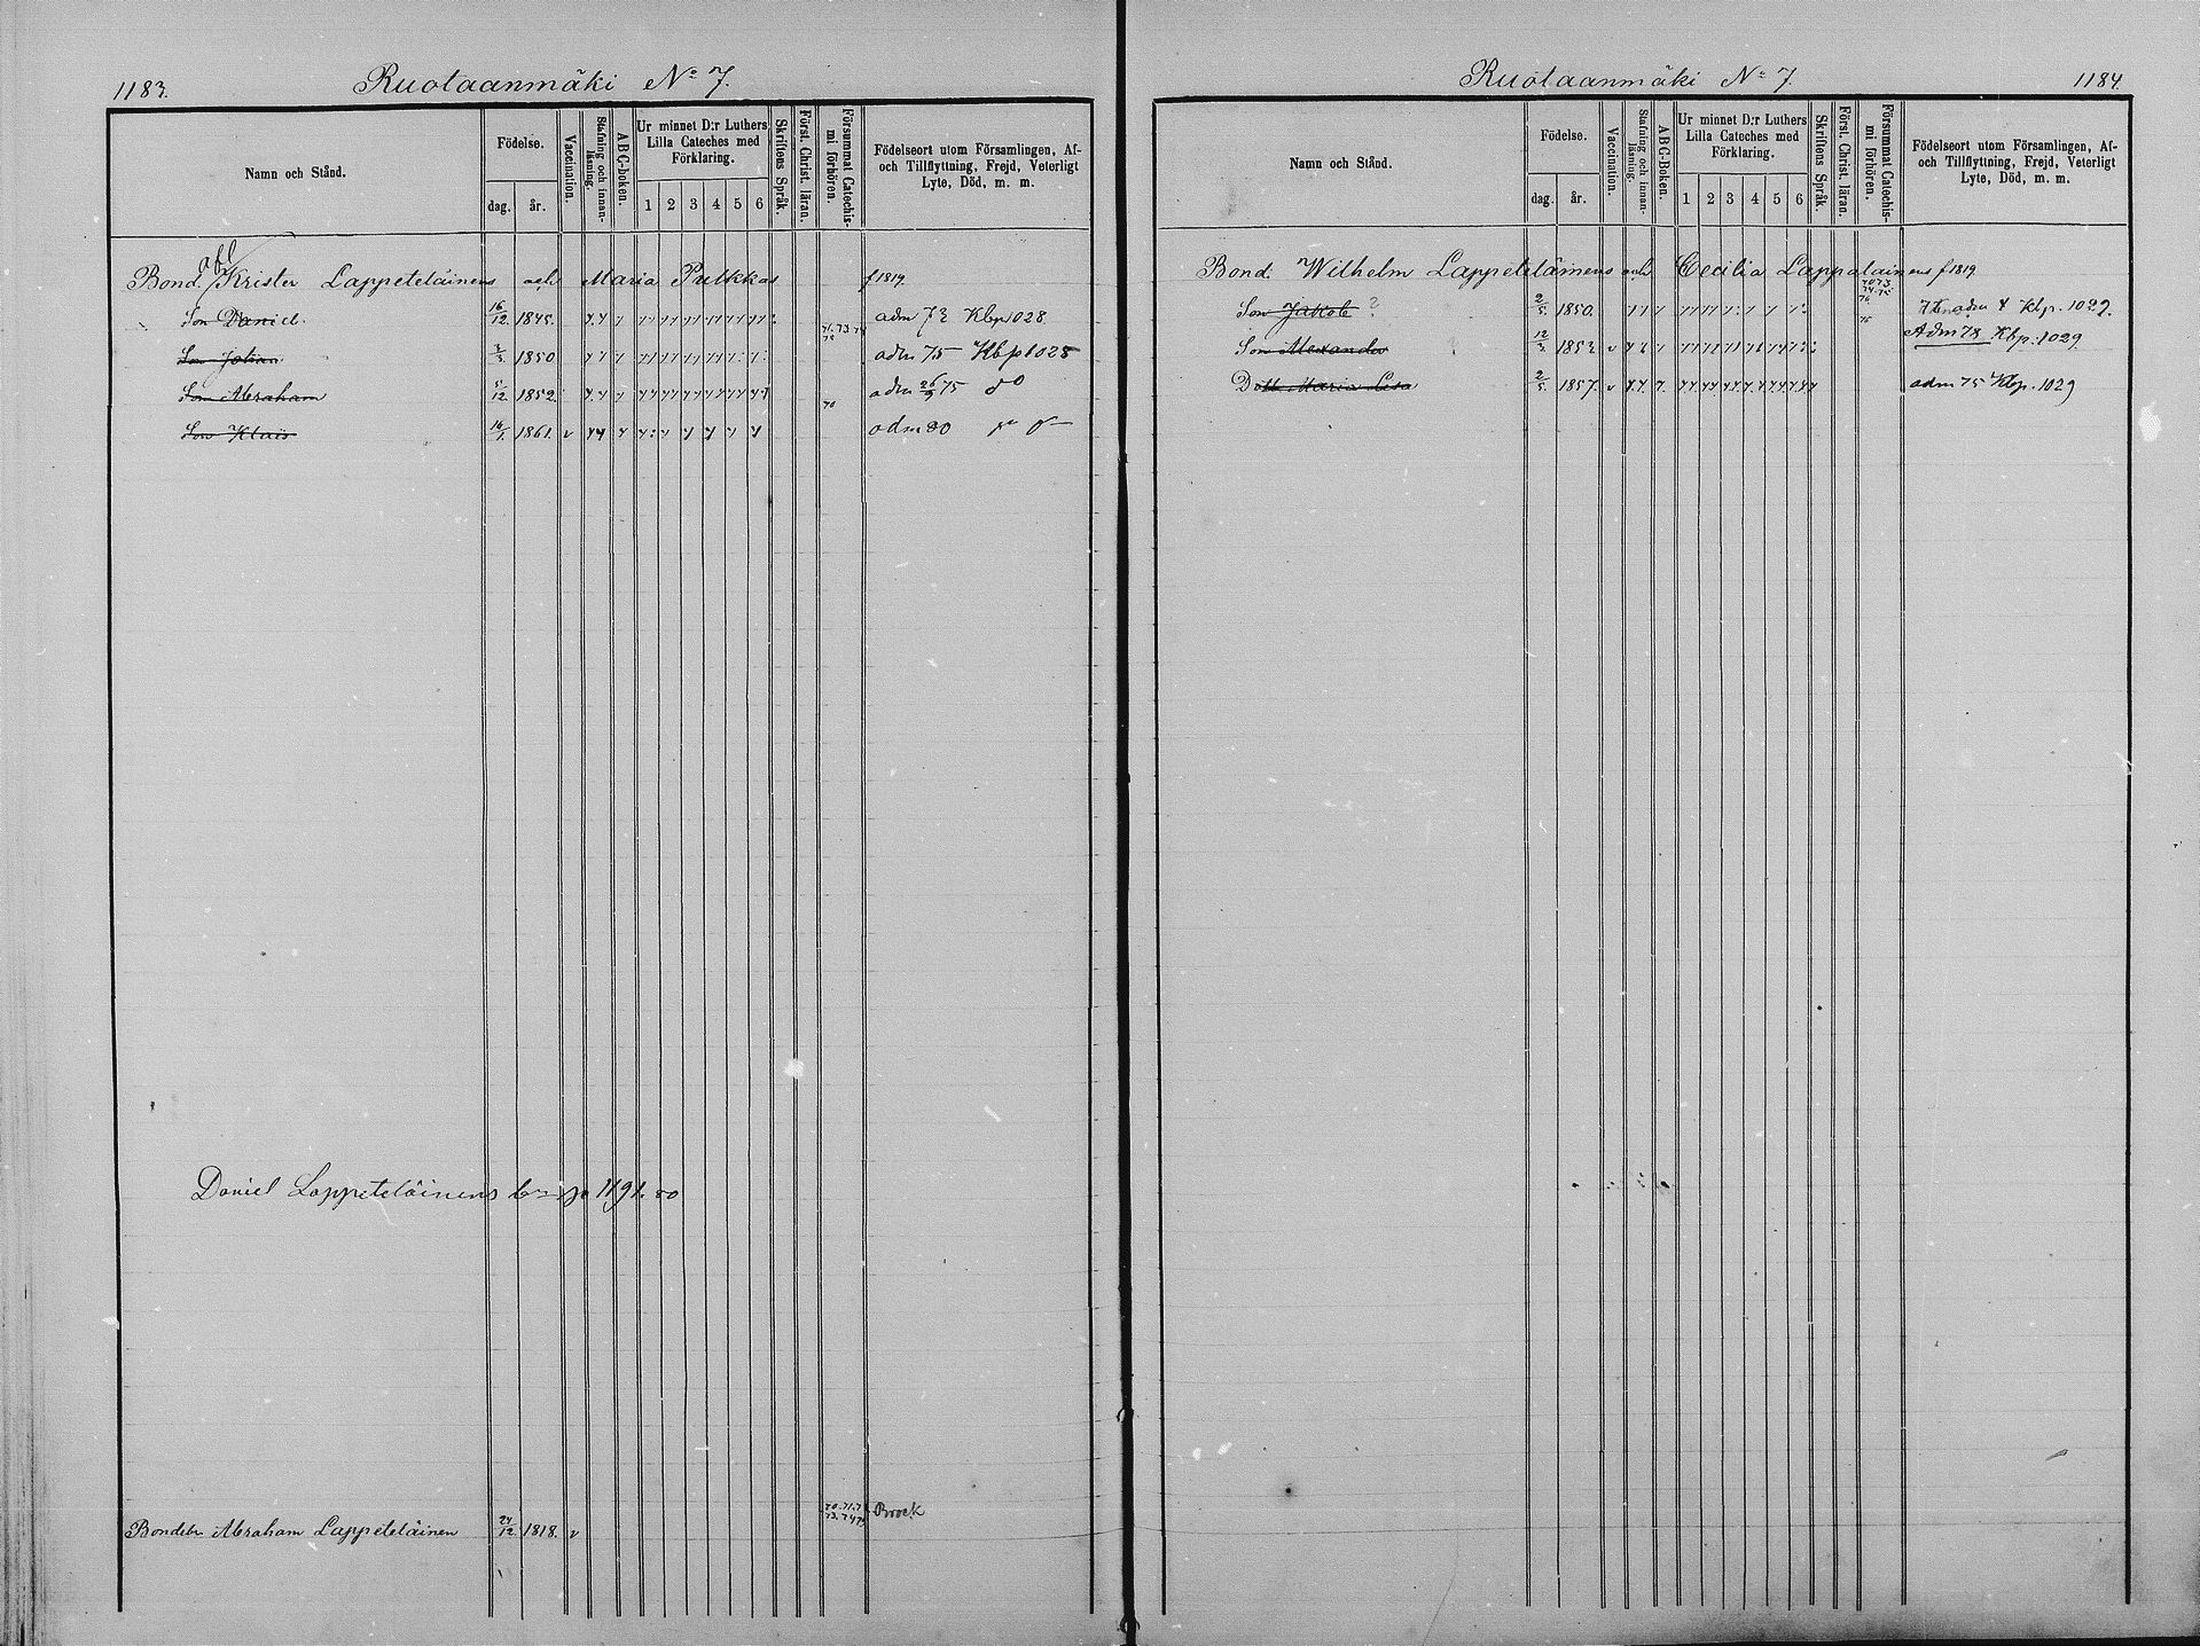 1183.
Ruotaanmäki No 7.
Namn och Stånd.
Födelse.
dag.
år.
Vaccination.
Stafning och innan-
läsning.
ABC-boken.
Ur minnet D:r Luthers
Lilla Cateches med
Förklaring.
1 2 3 4 5 6
Skriftens Språk.
Först. Christ. läran.
Försummat Catechis-
mi förhören.
Födelseort utom Församlingen, Af-
och Tillflyttning, Frejd, Veterligt
Lyte, Död, m. m.
afl
Bond. Krister Lappeteläinens och Maria Pulkkas f 1819.
Son Daniel. 16/12. 1845. adm 72 Kbp 1028.
Son Johan. 1850 adm 75 Kbp 1028
Son Abraham 5/12. 1852. 70 adm 26/9 75 do
Son Klaës 16/1. 1861. v adm 80
Daniel Lappeteläinens p 1191.
Bondebr. Abraham Lappeteläinen 24/12. 1818. v Brock
Ruotaanmäki No 7.
1184.
Namn och Stånd.
Födelse.
dag.
år.
Vaccination.
Stafning och innan-
läsning.
ABC-Boken.
Ur minnet D:r Luthers
Lilla Cateches med
Förklaring.
1 2 3 4 5 6
Skriftens Språk.
Först. Christ. läran.
Försummat Catechis-
mi förhören.
Födelseort utom Församlingen, Af-
och Tillflyttning, Frejd, Veterligt
Lyte, Död, m. m.
Bond. Wilhelm Lappeteläinens och Cecilia Lappalainens f 1819
Son Jakob ? 2/5. 1850. Kbp. 1029.
Son Alexander 12/3. 1853 v Adm 78 Kbp: 1029
Dott Maria Lisa 2/5. 1857. v adm 75 Kbp. 1029